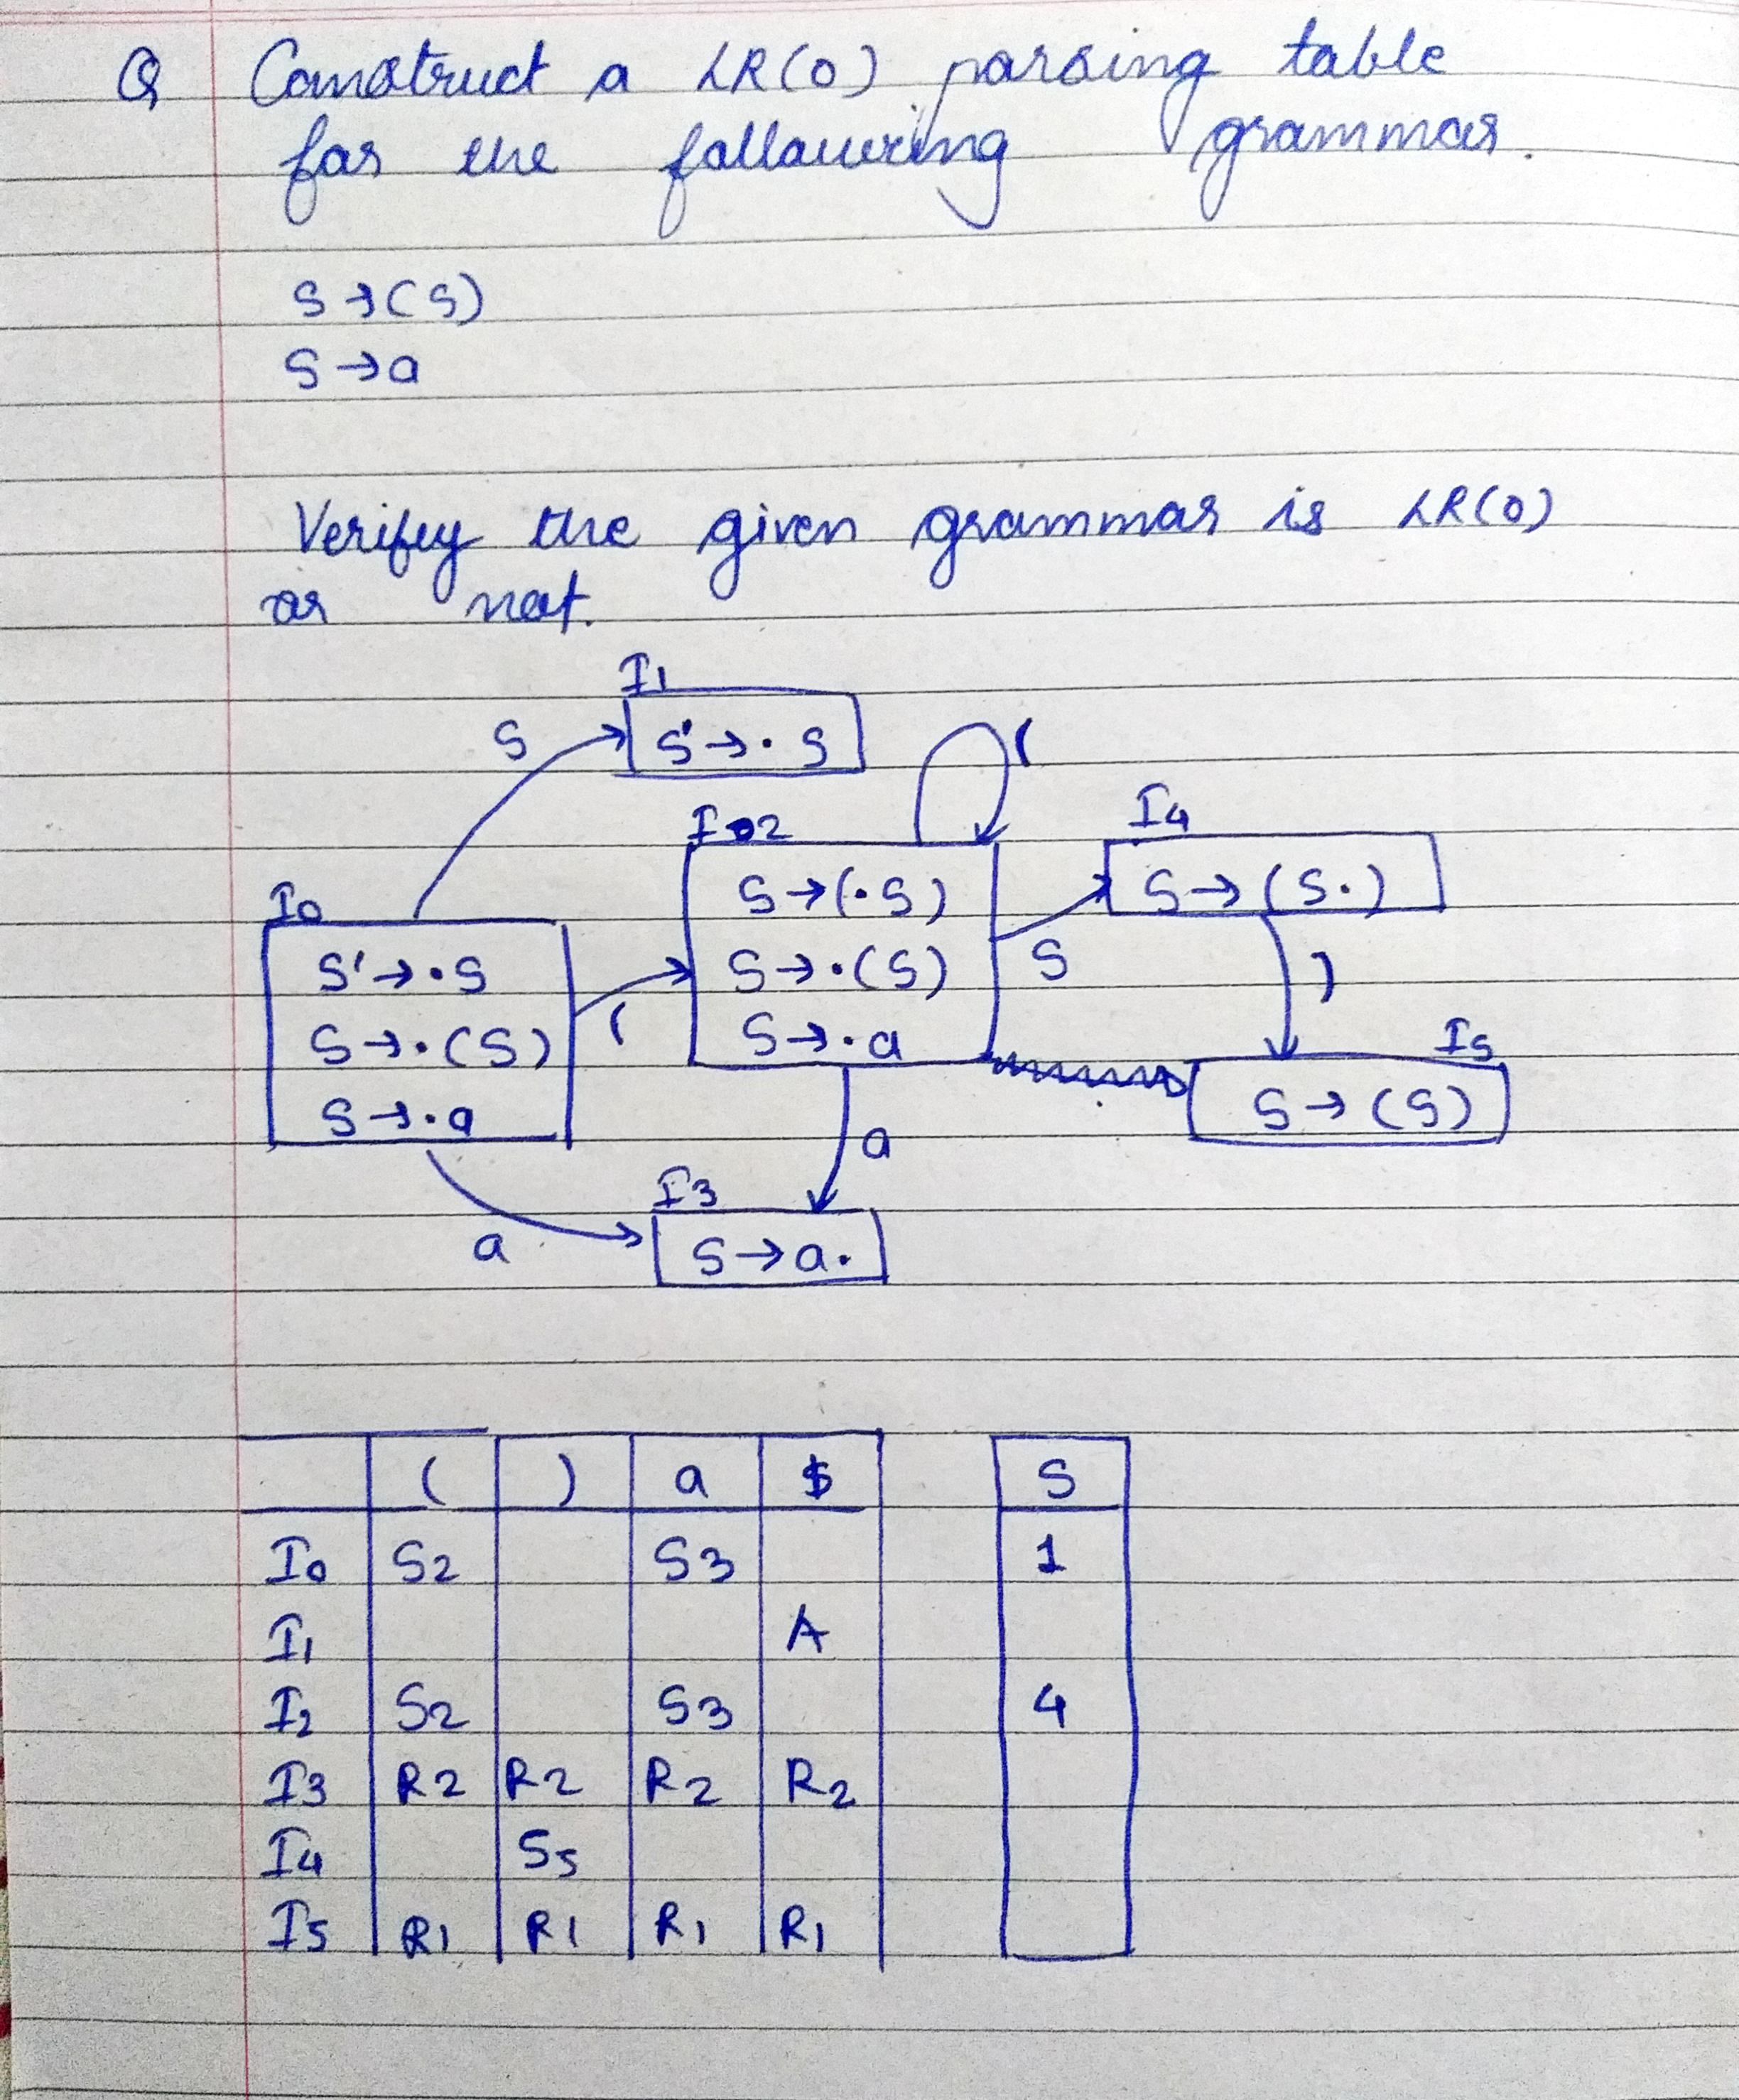 Q Construct a LR(0) parsing table
for the following grammar.
S → (S)
S → a
Verify the given grammar is LR(0)
or not.
I1
S S' → · S (
I2 I4
S → (·S) S → (S·)
I0
S' → ·S S → ·(S) S )
S → ·(S) ( S → ·a I5
S → ·a S → (S)
a
I3
a S → a·
( ) a $ S
I0 S2 S3 1
I1 A
I2 S2 S3 4
I3 R2 R2 R2 R2
I4 S5
I5 R1 R1 R1 R1